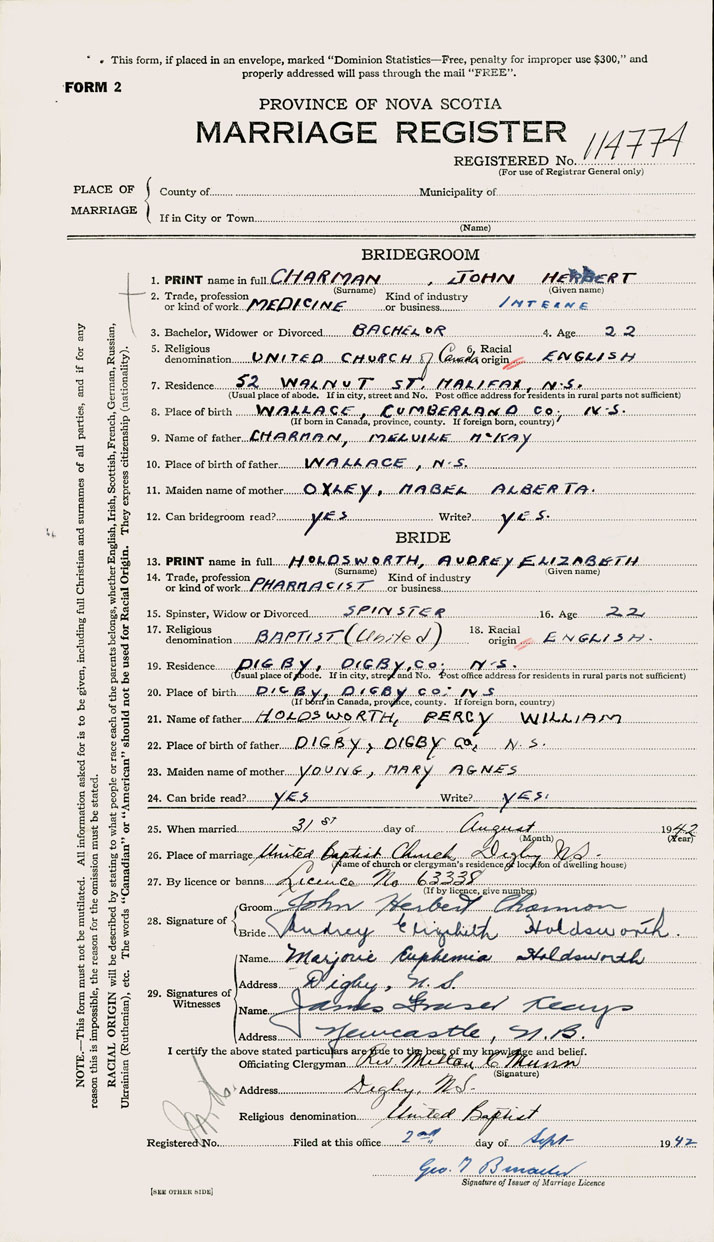 This form, if placed in an envelope, marked "Dominion Statistics—Free, penalty for improper use $300," and
properly addressed will pass through the mail "FREE".
FORM 2
PROVINCE OF NOVA SCOTIA
MARRIAGE REGISTER
REGISTERED No. 114774
(For use of Registrar General only)
PLACE OF MARRIAGE
County of Municipality of
If in City or Town
(Name)
BRIDEGROOM
1. PRINT name in full CHARMAN, JOHN HERBERT
(Surname) (Given name)
2. Trade, profession or kind of work MEDICINE Kind of industry or business INTERNE
3. Bachelor, Widower or Divorced BACHELOR 4. Age 22
5. Religious denomination UNITED CHURCH of Canada 6. Racial origin ENGLISH
7. Residence 52 WALNUT ST. HALIFAX, N.S.
(Usual place of abode. If in city, street and No. Post office address for residents in rural parts not sufficient)
8. Place of birth WALLACE, CUMBERLAND CO, N.S.
(If born in Canada, province, county. If foreign born, country)
9. Name of father CHARMAN, MELVILLE McKAY
10. Place of birth of father WALLACE, N.S.
11. Maiden name of mother OXLEY, MABEL ALBERTA.
12. Can bridegroom read? YES Write? YES.
BRIDE
13. PRINT name in full HOLDSWORTH, AUDREY ELIZABETH
(Surname) (Given name)
14. Trade, profession or kind of work PHARMACIST Kind of industry or business
15. Spinster, Widow or Divorced SPINSTER 16. Age 22
17. Religious denomination BAPTIST (United) 18. Racial origin ENGLISH.
19. Residence DIGBY, DIGBY, CO; N.S.
(Usual place of abode. If in city, street and No. Post office address for residents in rural parts not sufficient)
20. Place of birth DIGBY, DIGBY CO; NS
(If born in Canada, province, county. If foreign born, country)
21. Name of father HOLDSWORTH, PERCY WILLIAM
22. Place of birth of father DIGBY, DIGBY CO, N.S.
23. Maiden name of mother YOUNG, MARY AGNES
24. Can bride read? YES Write? YES.
25. When married 31st day of August 1942
(Month) (Year)
26. Place of marriage United Baptist Church, Digby N.S.
(Name of church or clergyman's residence or location of dwelling house)
27. By licence or banns Licence No 63338
(If by licence, give number)
28. Signature of
Groom John Herbert Charman
Bride Audrey Elizabeth Holdsworth.
29. Signatures of Witnesses
Name Marjorie Euphemia Holdsworth
Address Digby, N.S.
Name James Fraser
Address Newcastle, N.B.
I certify the above stated particulars are true to the best of my knowledge and belief.
Officiating Clergyman Rev. Milton C Munn
(Signature)
Address Digby, N.S.
Religious denomination United Baptist
Registered No. Filed at this office 2nd day of Sept 1942
Geo. T
Signature of Issuer of Marriage Licence
[SEE OTHER SIDE]
NOTE.—This form must not be mutilated. All information asked for is to be given, including full Christian and surnames of all parties, and if for any
reason this is impossible, the reason for the omission must be stated.
RACIAL ORIGIN will be described by stating to what people or race each of the parents belongs, whether English, Irish, Scottish, French, German, Russian,
Ukrainian (Ruthenian), etc. The words "Canadian" or "American" should not be used for Racial Origin. They express citizenship (nationality).